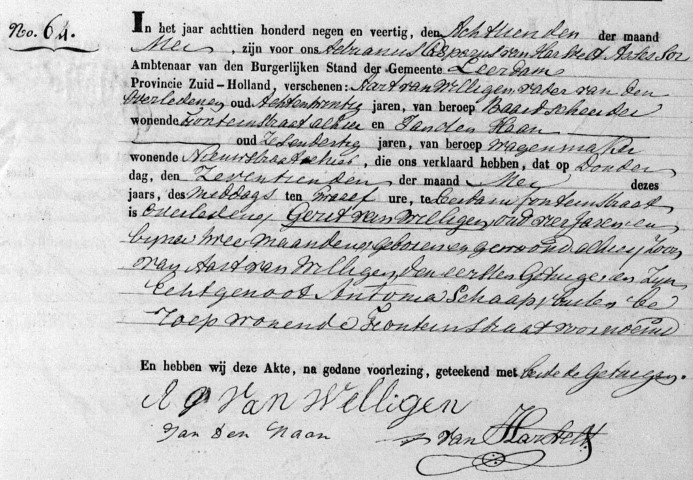 No. 64.
In het jaar achttien honderd negen en veertig, den Achttienden der maand
Mei, zijn voor ons, Adrianus van Harthelt Assessor
Ambtenaar van den Burgerlijken Stand der Gemeente Leerdam
Provincie Zuid-Holland, verschenen: Aart van Welligen vader van den
overledene, oud Achtentwintig jaren, van beroep Baardscheerder
wonende Fonteinstraat alhier en Jan den Haan
oud Zesendertig jaren, van beroep wagenmaker
wonende Nieuwstraat alhier, die ons verklaard hebben, dat op Donder
dag, den Zeventienden der maand Mei dezes
jaars, des Middags ten twaalf ure, te Leerdam fonteinstraat
is overleden Gerit van Welligen, oud vier Jaren en
bijna twee Maanden, geboren en gewoond alhier, Zoon
van Aart van Welligen, den eersten Getuige en Zijn
Echtgenoot Antonia Schaap, buiten be
roep wonende Fonteinstraat voornoemd
En hebben wij deze Akte, na gedane voorlezing, geteekend met beide de Getuigen.
A van Welligen
Jan Den Haan van Harthelt